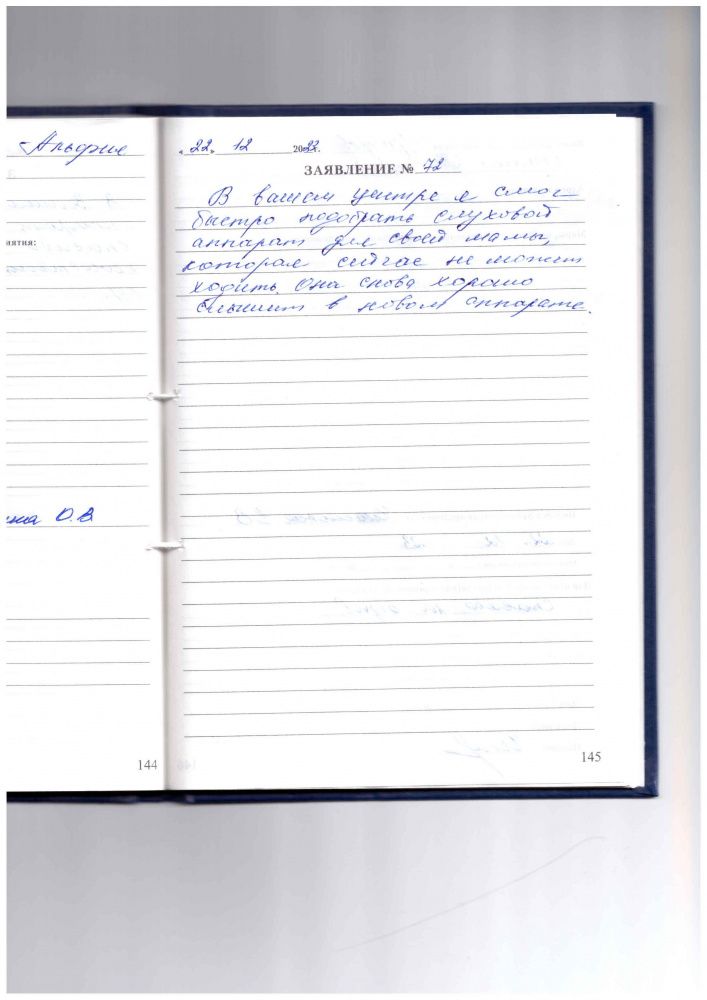 Альфие
иятия:
на О.В
144
«22» 12 2022г.
ЗАЯВЛЕНИЕ № 72
В вашем центре я смог
быстро подобрать слуховой
аппарат для своей мамы,
которая сейчас не может
ходить. Она снова хорошо
слышит в новом аппарате.
145